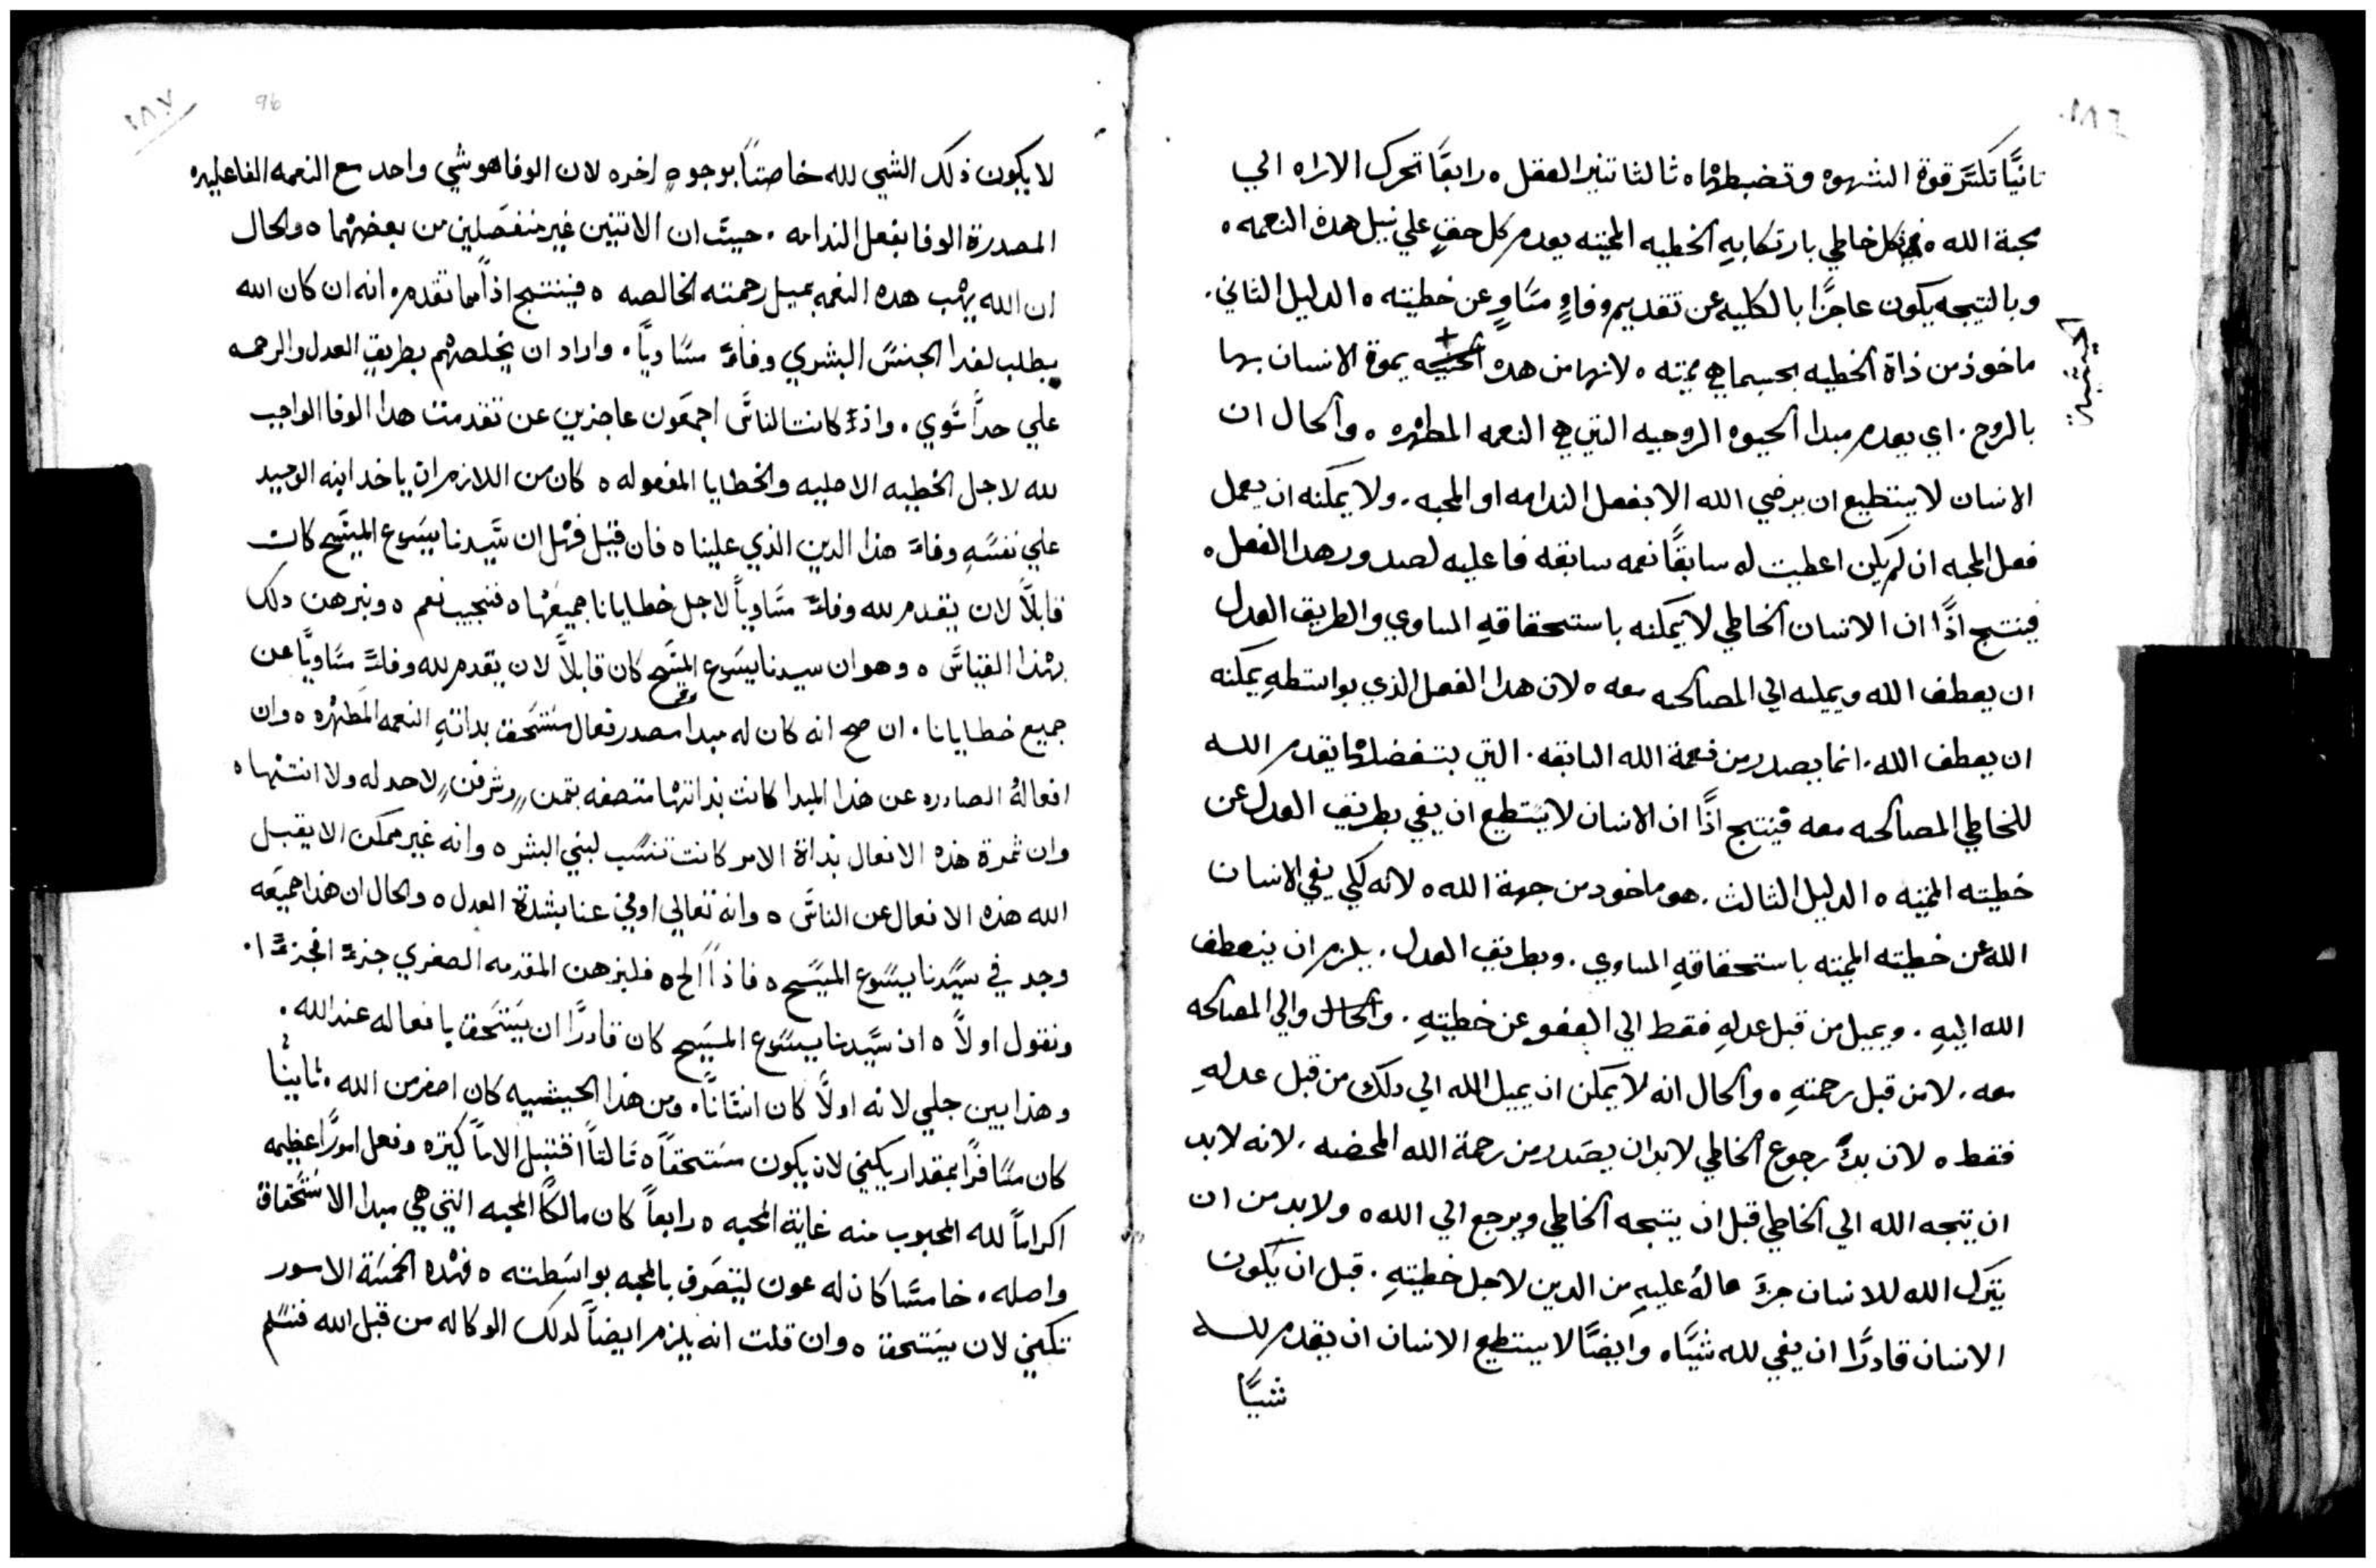 ١٨٦
ثانيًا تكسَّر قوة الشهوه وتضبطها ه ثالثا تنير العقل ه رابعًا تحرك الاراه الي
محبة الله ه فكل خاطي بارتكابهِ الخطيه المميته يعدم كل حقٍ علي نيل هده النعمه ه
وبالتيجه يكون عاجزًا بالكليه عن تقديم وفاءٍ مسَاوٍ عن خطيته ه الدليل الثاني .
ماخوذ من ذاة الخطيه بحسبما هي مميته ه لانها من هده الحيثيه يموة الانسان بها
الحيثيه
بالروح . اي يعدم مبدا الحيوه الروحيه التي هي النعمه المطهره ه والحال ان
الانسان لا يستطيع ان يرضي الله الا بفعل الندامه او المحبه . ولا يمكنه ان يعمل
فعل المحبه ان لم يكن اعطيت له سابقًا نعمه سابقه فاعليه لصدور هدا الفعل ه
فينتج اذًا ان الانسان الخاطي لا يمكنه باستحقاقهِ المساوي والطريق العدل
ان يعطف الله ويميله الي المصالحه معه ه لان هدا الفعل الذي بواسطهِ يمكنه
ان يعطف الله . انما يصدر من نعمة الله السابقه . التي بتفضلها يقدم اللـــه
للخاطي المصالحه معه فينتج اذًا ان الانسان لا يسَتطيع ان يفي بطريق العدل عن
خطيته المميته ه الدليل الثالث . هو ماخود من جهة الله ه لانه لكي يفي الانسان
الله عن خطيته المميته باستحقاقهِ المساوي . وبطريق العدل . يلزم ان ينعطف
الله اليهِ . ويميل من قبل عدلهِ فقط الي العفو عن خطيتهِ . والحال والي المصالحه
معه . لا من قبل رحمتهِ ه والحال انه لا يمكن ان يميل الله الي دلك من قبل عدلهِ
فقط ه لان بدءُ رجوع الخاطي لابد ان يصَدر من رحمة الله المحضه . لانه لابد
ان يتجه الله الي الخاطي قبل ان يتجه الخاطي ويرجع الي الله ه ولابد من ان
يترك الله للانسان جزءَ مالهُ عليهِ من الدين لاجل خطيتهِ . قبل ان يكون
الانسان قادرًا ان يفي لله شيًا ه وايضًا لا يستطيع الانسان ان يقدم للـــه
شيًا
١٨٧
96
لا يكون ذلك الشي لله خاصتًا بوجوهٍ اخره لان الوفا هو شي واحد مع النعمه الفاعليه
المصدرة الوفا بفعل الندامه . حيث ان الاتنين غير منفصَلين من بعضهما ه والحال
ان الله يهب هده النعمه بميل رحمته الخالصه ه فينتتج اذاً مما تقدم ه انه ان كان الله
يطلب لفدا الجنسَ البشري وفاءً مسَاويًا . واراد ان يخلصهم بطريق العدل والرحمه
علي حدًا سَوي . واذ كانت الناسَ اجمعَون عاجزين عن تقدمت هدا الوفا الواجب
لله لاجل الخطيه الاصليه والخطايا المفعوله ه كان من اللازم ان ياخد ابنه الوحيد
علي نفسَهِ وفاء هذا الدين الذي علينا ه فان قيل فهل ان سَيدنا يسَوع المسَيح كان
قابلاً لان يقدم لله وفاءً مسَاوياً لاجل خطايانا جميعَها ه فنجيب نعم ه ونبرهن دلك
بهذا القياسَ ه وهو ان سيدنا يسَوع المسَيح كان قابلاً لان يقدم لله وفاءً مسَاويًا عن
جميع خطايانا . ان صح انه كان له مبدا مصدر فعال مسَتحَق بداتهِ النعمه المطَهره ه وان
افعالهُ الصادره عن هذا المبدا كانت بذاتها متصفه بتمن وشرفن لا حد له ولا انتها ه
وان ثمرة هذه الافعال بذاة الامر كانت تنسَب لبني البشر ه وانه غير ممكن الا يقبل
الله هذه الافعال عن الناسَ ه وانه تعالي اوفي عنا بشدة العدل ه والحال ان هذا جميعَه
وجد في سيَدنا يسَوع المسَيح ه فاذاً الخ ه فلنبرهن المقدمه الصغري جزءً فجزءًا .
ونقول اولاً ه ان سَيدنا يسَوع المسَيح كان قادرًا ان يسَتحَق بافعاله عند الله .
وهذا بين جلي لانه اولًا كان انسَانًا . ومن هذا الحيثيه كان اصغر من الله . ثانيًا
كان مسَافرًا بمقدار يكفي لان يكون مسَتحقاً ه ثالتاً اقتبل الاماً كتيره وفعل امورًا عظيمه
اكراماً لله المحبوب منه غاية المحبه ه رابعاً كان مالكًا المحبه التي هي مبدا الاسَتحَقاق
واصله . خامسًا كان له عون ليتصَرف بالمحبه بواسَطته ه فهده الخمسَة الامور
تكفي لان يسَتحق ه وان قلت انه يلزم ايضاً لدلك الوكاله من قبل الله فنسَلم